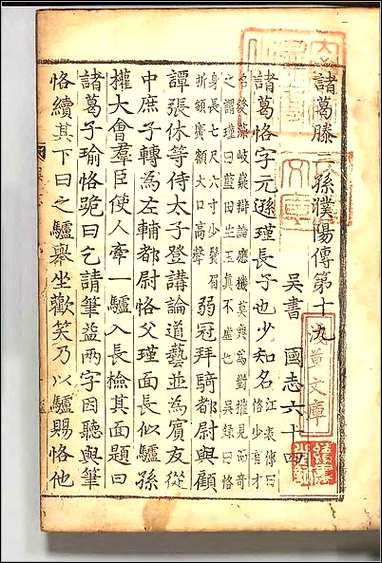 諸葛滕二孫濮陽傳第十九
吳書 國志六十四
諸葛恪字元遜瑾長子也少知名
江表傳曰
恪少有才
名發藻岐嶷辯論應機莫與為對權見而奇
之謂瑾曰藍田生玉真不虛也 吳録曰恪
身長七尺六寸少鬚眉
折頞廣額大口高聲
弱冠拜騎都尉與顧
譚張休等侍太子登講論道藝並為賓友從
中庶子轉為左輔都尉恪父瑾面長似驢孫
權大會羣臣使人牽一驢入長檢其面題曰
諸葛子瑜恪跪曰乞請筆益兩字因聽與筆
恪續其下曰之驢舉坐歡笑乃以驢賜恪他
草文庫